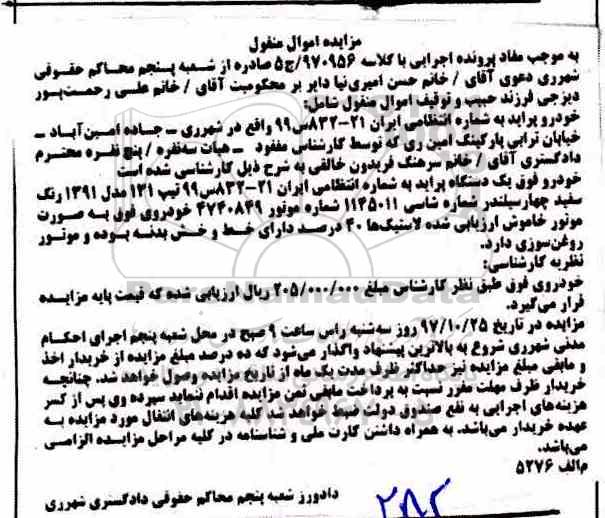 مزایده اموال منقول
به موجب مفاد پرونده اجرایی با کلاسه ۹۷۰۹۵۶/ج۵ صادره از شعبه پنجم محاکم حقوقی
شهرری دعوی آقای / خانم حسن امیری‌نیا دایر بر محکومیت آقای / خانم علی رحمت‌پور
دیزجی فرزند حبیب و توقیف اموال منقول شامل:
خودرو پراید به شماره انتظامی ایران ۲۱-۸۳۲س۹۹ واقع در شهرری ـ جاده امین‌آباد ـ
خیابان ترابی پارکینگ امین ری که توسط کارشناس مفقود ـ هیات سه‌نفره / پنج نفره محترم
دادگستری آقای / خانم سرهنگ فریدون خالقی به شرح ذیل کارشناسی شده است
خودرو فوق یک دستگاه پراید به شماره انتظامی ایران ۲۱-۸۳۲س۹۹ تیپ ۱۳۱ مدل ۱۳۹۱ رنگ
سفید چهارسیلندر شماره شاسی ۱۱۴۵۰۱۱ شماره موتور ۴۷۴۰۸۴۹ خودروی فوق به صورت
موتور خاموش ارزیابی شده لاستیک‌ها ۴۰ درصد دارای خط و خش بدنه بوده و موتور
روغن‌سوزی دارد.
نظریه کارشناسی:
خودروی فوق طبق نظر کارشناس مبلغ ۲۰۵/۰۰۰/۰۰۰ ریال ارزیابی شده که قیمت پایه مزایده
قرار می‌گیرد.
مزایده در تاریخ ۹۷/۱۰/۲۵ روز سه‌شنبه راس ساعت ۹ صبح در محل شعبه پنجم اجرای احکام
مدنی شهرری شروع به بالاترین پیشنهاد واگذار می‌شود که ده درصد مبلغ مزایده از خریدار اخذ
و مابقی مبلغ مزایده نیز حداکثر ظرف مدت یک ماه از تاریخ مزایده وصول خواهد شد. چنانچه
خریدار ظرف مهلت مقرر نسبت به پرداخت مابقی ثمن مزایده اقدام ننماید سپرده وی پس از کسر
هزینه‌های اجرایی به نفع صندوق دولت ضبط خواهد شد کلیه هزینه‌های انتقال مورد مزایده به
عهده خریدار می‌باشد. به همراه داشتن کارت ملی و شناسنامه در کلیه مراحل مزایده الزامی
می‌باشد.
م‌الف ۵۲۷۶
دادورز شعبه پنجم محاکم حقوقی دادگستری شهرری
۲۸۲